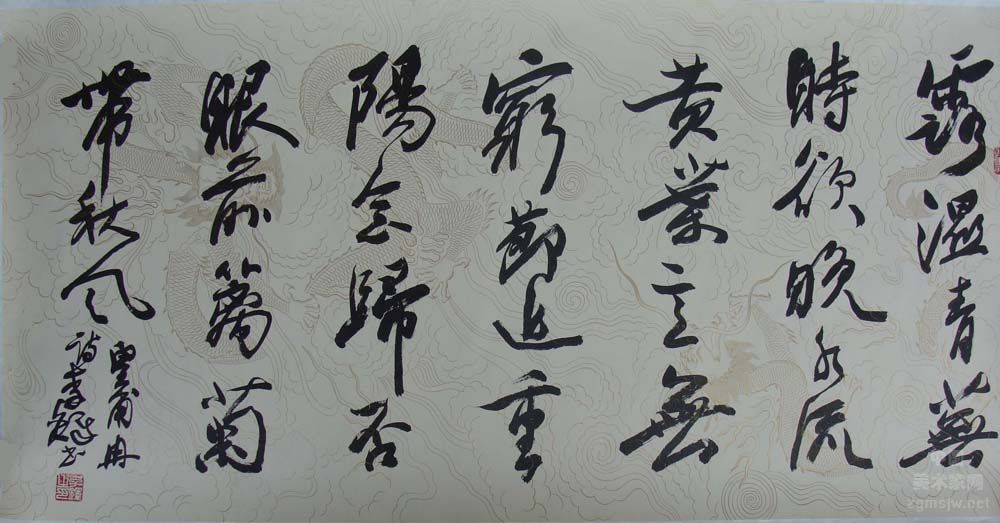 露濕青蕪
時欲晚水流
黄葉意無
窮節近重
陽念歸否
眼前籬菊
帶秋風
皇甫冉
詩李书
美术家网
zgmsjw.net